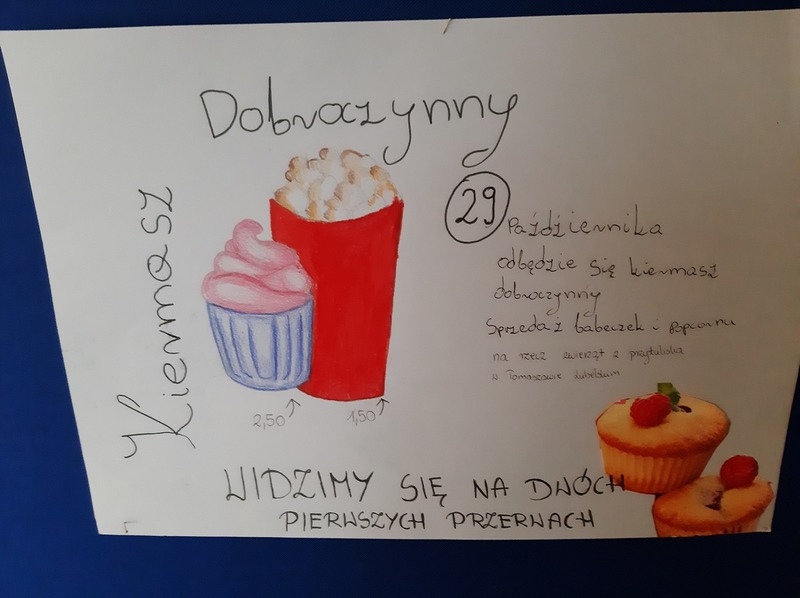 Dobroczynny
Kiermasz
29 Października
odbędzie się kiermasz
dobroczynny
Sprzedaż babeczek i popcornu
na rzecz zwierząt z przytuliska
w Tomaszowie Lubelskim
2,50 1,50
WIDZIMY SIĘ NA DWÓCH
PIERWSZYCH PRZERWACH